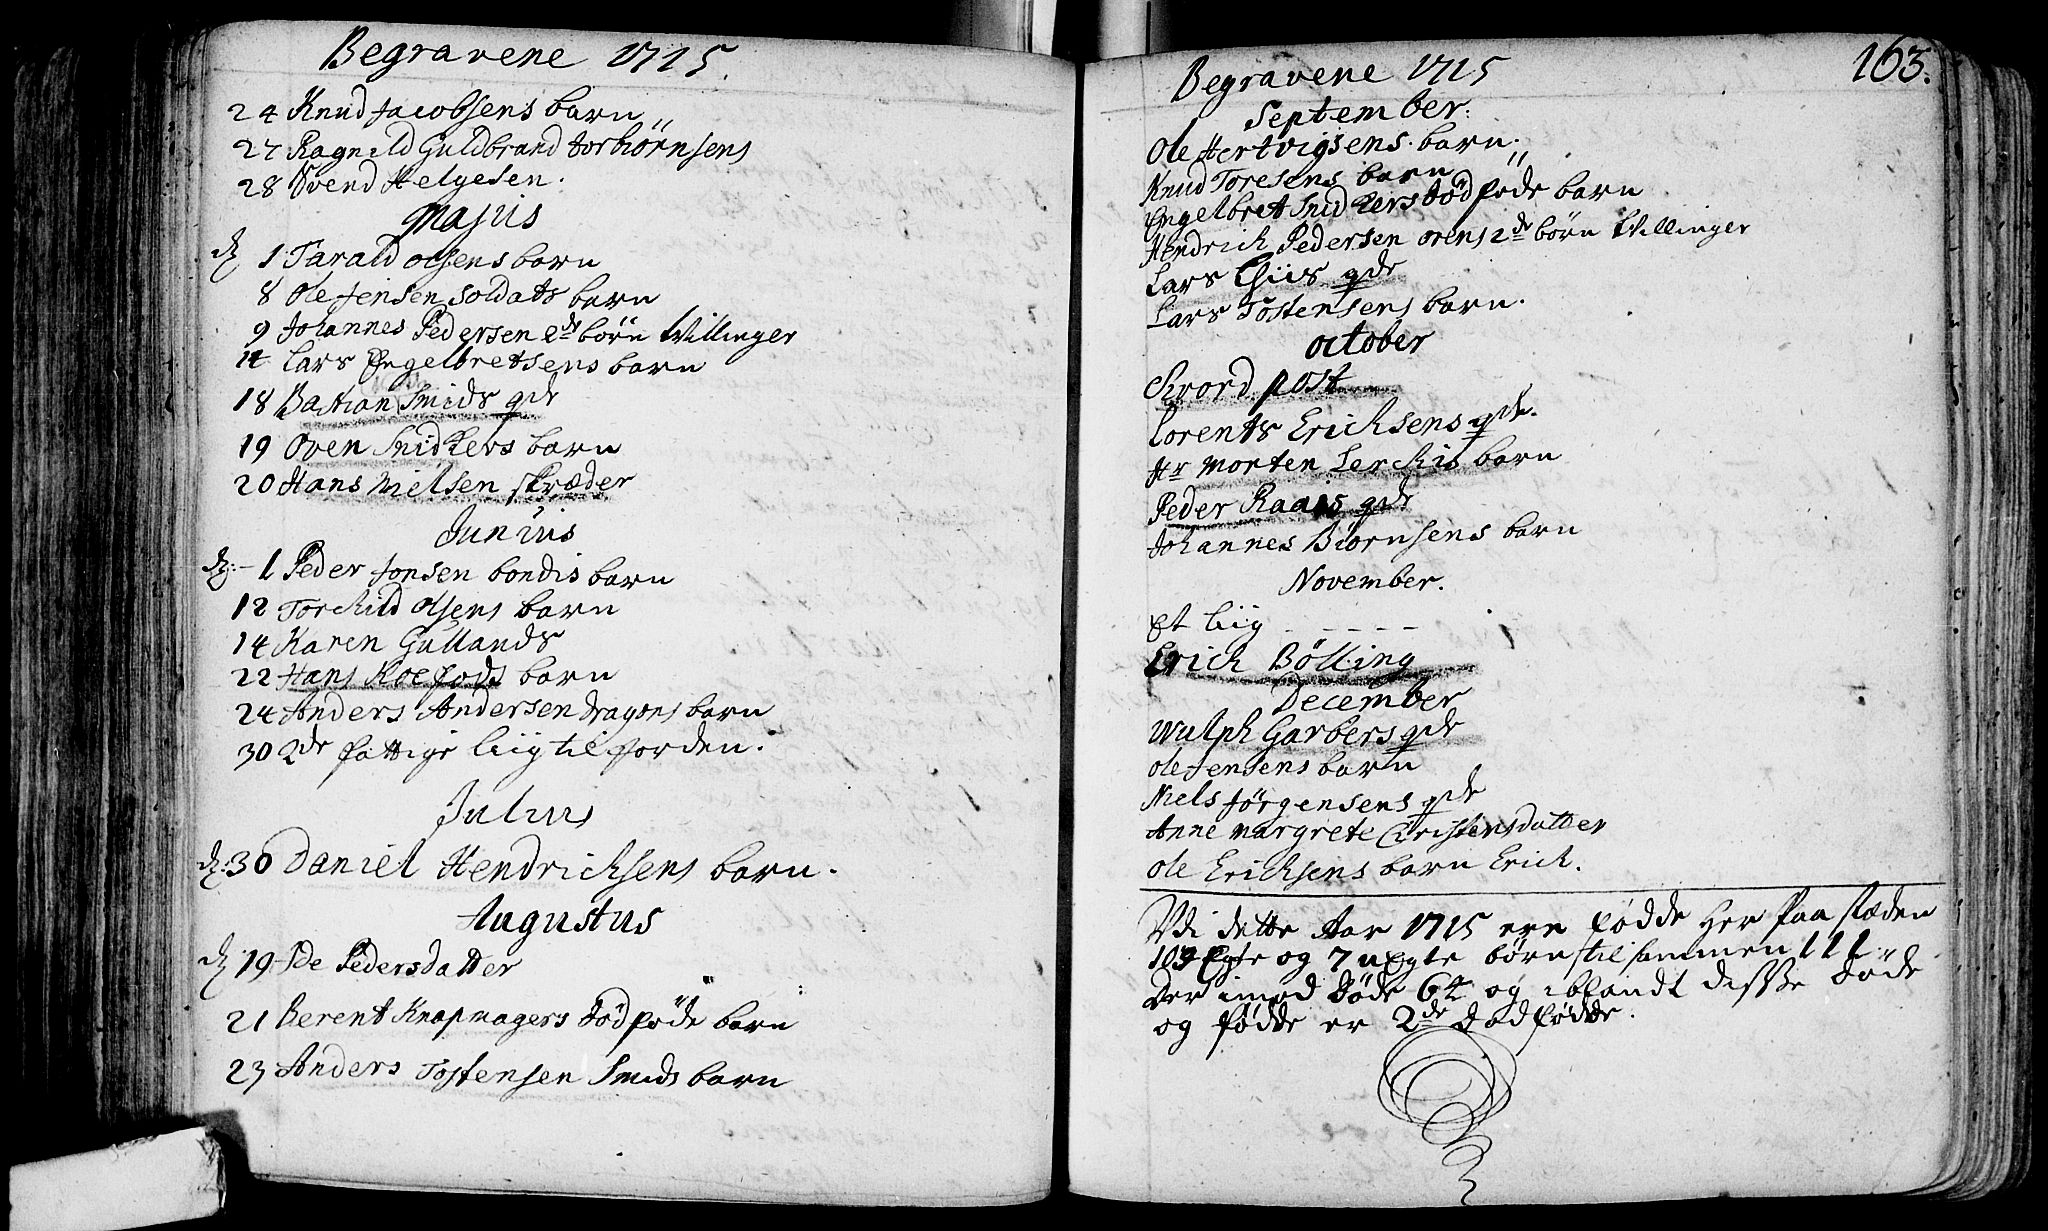 Begravene 1715.
24 Knud Jacobsens barn
27 Ragnild Guldbrand Torbiörnsens
28 Svend Helgesen.
Majus
d 1 Tarald olsens barn
8 Ole Jensen soldats barn
9 Johannes Pedersen 2de börn tvillinger
14 Lars Engelbretsens barn
18 Bastian Smids qde
19 Oven Snidkers barn
20 Hans Nielsen skræder
Junius
d: 1 Peder Jonsen bondis barn
12 Torchild olsens barn
14 Karen Gullands
22 Hans Koefods barn
24 Anders Andersen dragons barn
30 2de fattige liig til jorden.
Julius
d. 30 Daniel Hendrichsens barn.
Augustus
d 19 Ide Pedersdatter
21 Berent Knapmagers död föde barn
23 Anders Tostensen Smids barn
Begravene 1715
163.
September.
Ole Hertvigsens barn.
Knud Toresens barn
Engelbret Snidkers död föde barn
Hendrich Pedersen orens 2de börn tvillinger
Lars qde
Lars Tostensens barn.
October
post
Lorents Erichsens qde.
Hr Morten Lerchis barn
Peder Raais qde
Johannes Biörnsens barn
November.
Et liig - - - - -
Erich Bölling
December
Wulph Garbers qde
Ole Jensens barn
Niels Jörgensens qde
Anne Margrete Christensdatter
Ole Erichsens barn Erich.
Udi dette Aar 1715 ere födde Her Paa stæden
Egte og 7 uEgte börn til sammen 111
Der imod döde 64 og iblandt disse döde
og födde er 2de dödfödde.